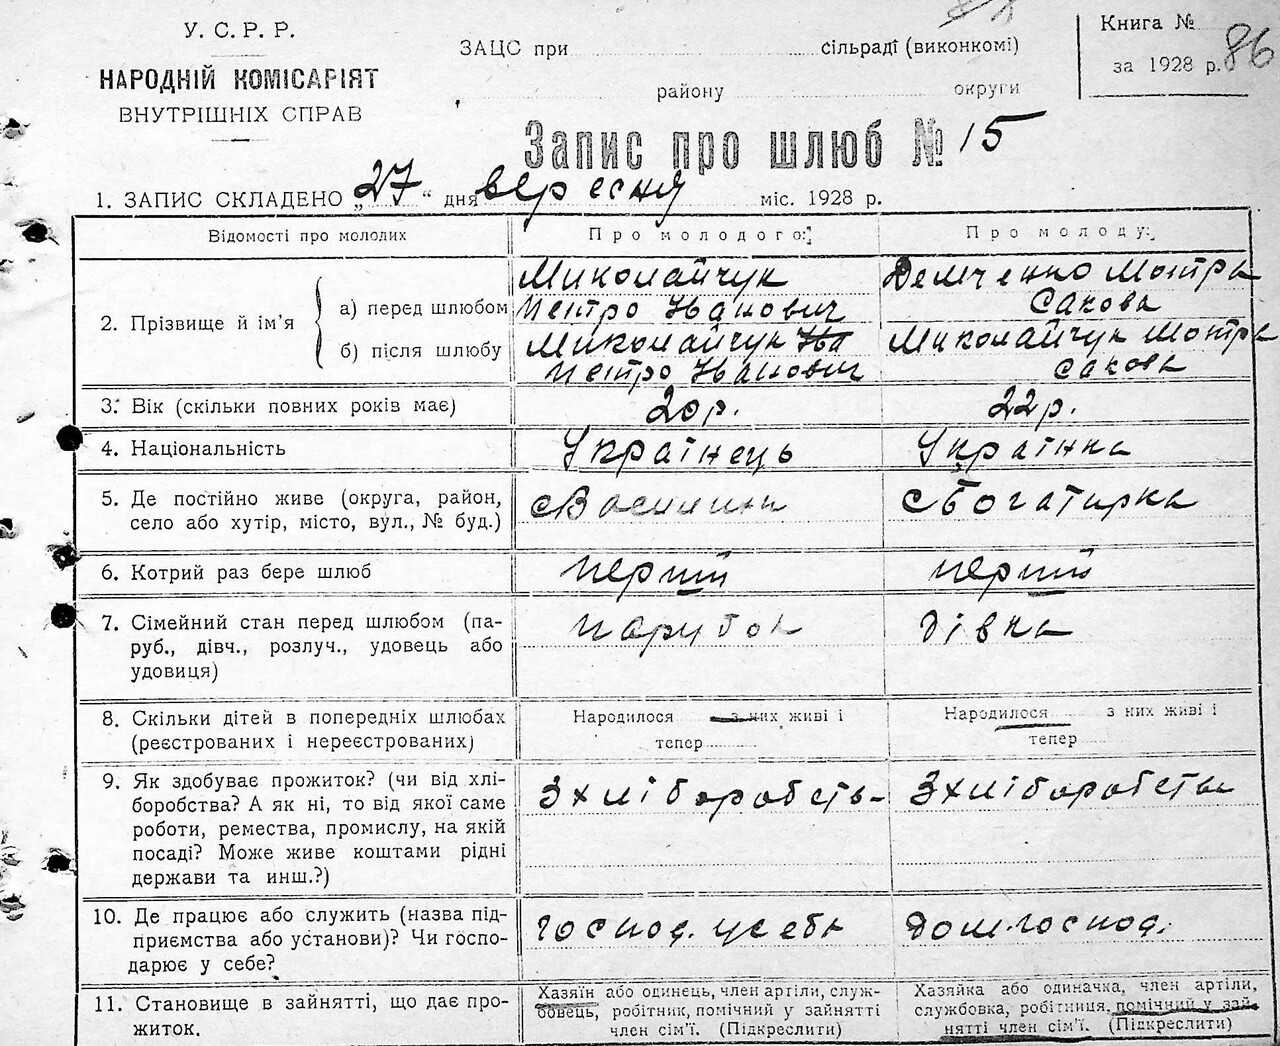 У. С. Р. Р.
НАРОДНІЙ КОМІСАРІЯТ
ВНУТРІШНІХ СПРАВ
ЗАЦС при сільраді (виконкомі)
району округи
Книга №
за 1928 р.
86
Запис про шлюб № 15
1. ЗАПИС СКЛАДЕНО „27“ дня вересня міс. 1928 р.
Відомості про молодих
Про молодого:
Про молоду:
2. Прізвище й ім’я
а) перед шлюбом
Миколайчук
Петро Іванович
Демченко Мотря
Сакова
б) після шлюбу
Миколайчук Іва
Петро Іванович
Миколайчук Мотря
Сакова
3. Вік (скільки повних років має)
20 р.
22 р.
4. Національність
Українець
Українка
5. Де постійно живе (округа, район,
село або хутір, місто, вул., № буд.)
с Богатирка
6. Котрий раз бере шлюб
перший
перший
7. Сімейний стан перед шлюбом (па-
руб., дівч., розлуч., удовець або
удовиця)
парубок
дівка
8. Скільки дітей в попередніх шлюбах
(реєстрованих і нереєстрованих)
Народилося з них живі і
тепер
Народилося з них живі і
тепер
9. Як здобуває прожиток? (чи від хлі-
боробства? А як ні, то від якої саме
роботи, ремества, промислу, на якій
посаді? Може живе коштами рідні
держави та инш.?)
З хліборобств-
З хліборобства
10. Де працює або служить (назва під-
приємства або установи)? Чи госпо-
дарює у себе?
господ. у себе
дом. господ.
11. Становище в зайнятті, що дає про-
житок.
Хазяїн або одинець, член артіли, служ-
бовець, робітник, помічний у зайнятті
член сім’ї. (Підкреслити)
Хазяйка або одиначка, член артіли,
службовка, робітниця, помічний у зай-
нятті член сім’ї. (Підкреслити)